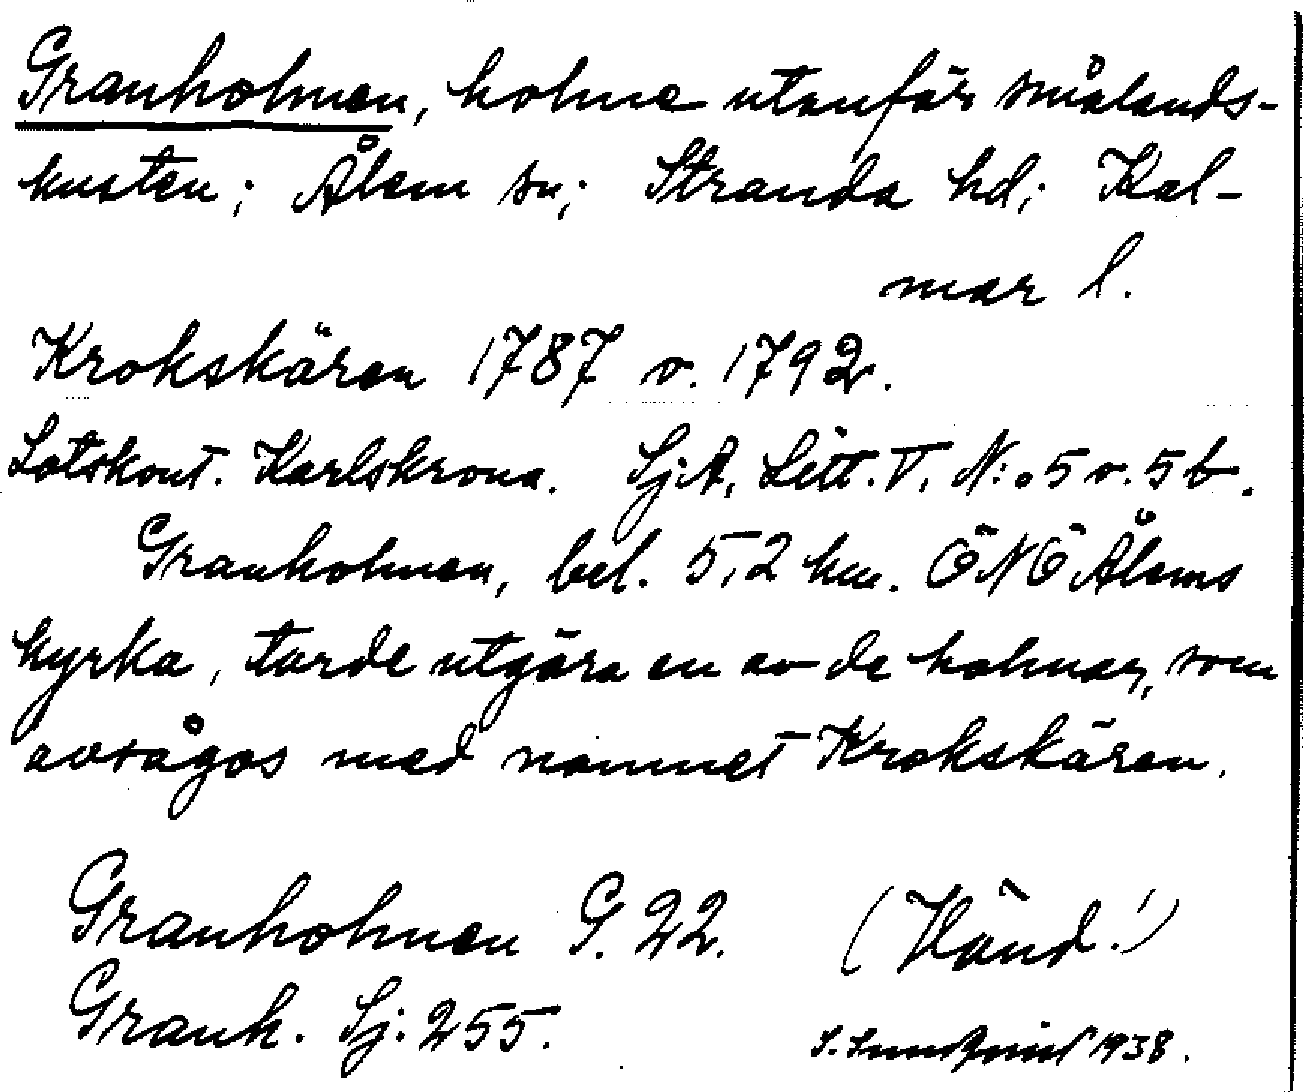 Granholmen, holme utanför smålands-
kusten; Ålem sn; Stranda hd; Kal-
mar l.
Krokskären 1787 o. 1792.
Lotskont. Karlskrona. Sj:A, Litt. T, N:o 5 o. 5 b.
Granholmen, bel. 5,2 km. ÖNÖ Ålems
kyrka, torde utgöra en av de holmar, som
avsågos med namnet Krokskären.
Granholmen G. 22. (Vänd!)
Granh. Sj: 255.
1938.